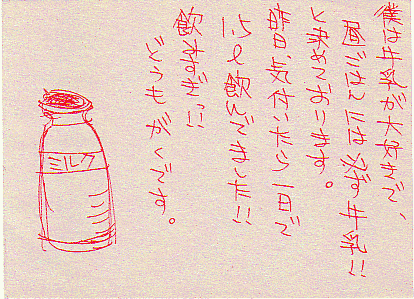 僕は牛乳が大好きで、
昼ごはんには必ず牛乳!!
と決めております。
昨日、気付いたら一日で
1.5ℓ飲んでました!!
飲みすぎっ!!
どうもがくです。
ミルク